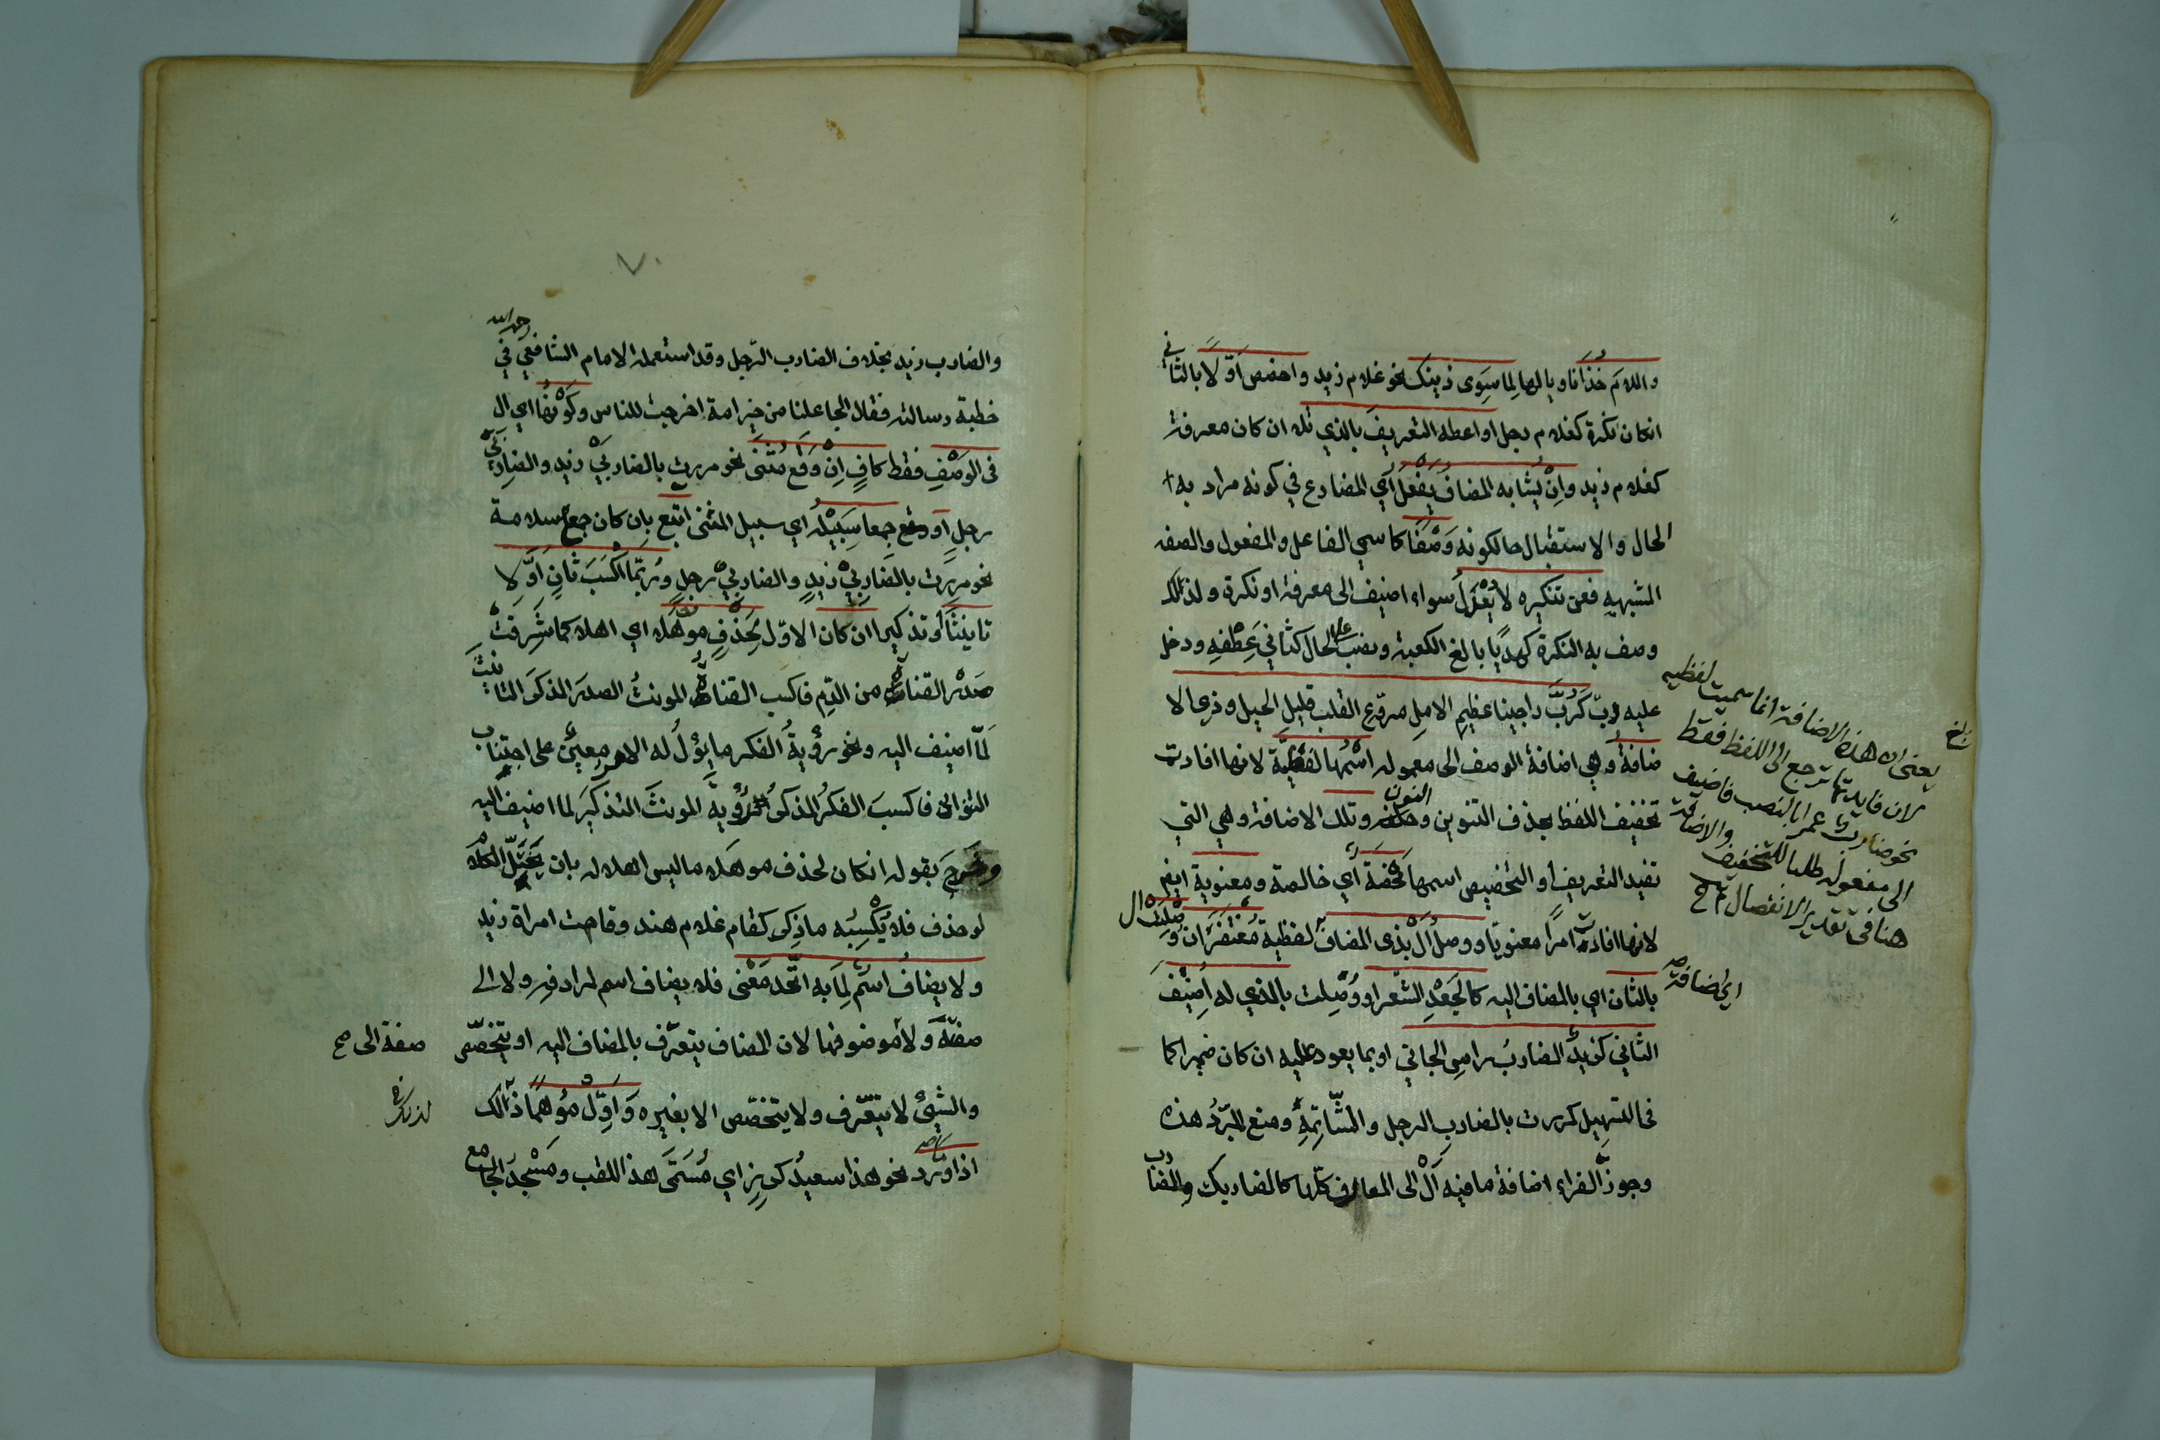 واللام خذا ناويا لها لما سوى ذينك نحو غلام زيد واخصص اولا بالثاني
انكان نكرة كغلام رجل او اعطه التعريف بالذي تلا ان كان معرفة
كغلام زيد وان يشابه المضاف يفعل اي المضارع في كونه مرادا به
الحال والاستقبال حالكونه وصفا كاسمي الفاعل والمفعول والصفه
المشبهه فعن تنكيره لا يعزل سواء اضيف الى معرفة او نكرة ولذلك
وصف به النكرة كهديا بالغ الكعبة ونصب على الحال كثاني عطفه ودخل
عليه رب كرب راجينا عظيم الامل مروع القلب قليل الحيل وذي الا
ضافة وهي اضافة الوصف الى معموله اسمها لفظية لانها افادت
تخفيف اللفظ بحذف التنوين والنون وتلك الاضافة وهي التي
تفيد التعريف او التخصيص اسمها محضة اي خالصة ومعنوية ايضا
لانها افادت امرا معنويا ووصل ال بذى المضاف لفظية مغتفر ان وصلت ال
بالثان اي بالمضاف اليه كالجعد الشعر او وصلت بالذي له اضيف
الثاني كزيد الضارب راس الجاني او بما يعود عليه ان كان ضميرا كما
في التسهيل كمررت بالضارب الرجل والشاتمه ومنع المبرد هذه
وجوز الفراء اضافة ما فيه ال الى المعارف كلها كالضاربك والضارب
يعني ان هذه الاضافة انما سميت لفظيه
لان فايدتها ترجع الى اللفظ فقط
نحو ضارب عمرا بالنصب فاضيف
الى مفعوله طلبا للتخفيف والاضافة
هنا في تقدير الانفصال
اي اضافة
بلغ
٧٠
والضارب زيد بخلاف الضارب الرجل وقد استعمله الامام الشافعي رحمه الله في
خطبة رسالته فقال الجاعلنا من خير امة اخرجت للناس وكونها اي ال
في الوصف فقط كاف ان وقع مثنى نحو مررت بالضاربي زيد والضاربي
رجل او وقع جمعا سبيله اي سبيل المثنى اتبع بان كان جمع سلامة
نحو مررت بالضاربي زيد والضاربي رجل وربما اكسب ثان اولا
تانيثا او تذكيرا ان كان الاول لحذف موهلا اي اهلا كما شرقت
صدر القناة من الدم فاكسب القناة المونث الصدر المذكر التانيث
لما اضيف اليه ونحو رؤية الفكر ما يؤل له الامر معين على اجتناب
التوانى فاكسب الفكر المذكر رؤية المونث التذكير لما اضيف اليه
وخرج بقوله ان كان لحذف موهلا ما ليس اهلا له بان يختل الكلام
لو حذف فلا يكسبه ما ذكر كقام غلام هند وقامت امراة زيد
ولا يضاف اسم لما به اتحد معنى فلا يضاف اسم لمرادفه ولا الى
صفته ولا موصوفها لان المضاف يتعرف بالمضاف اليه او يتخصص
والشئ لا يتعرف ولا يتخصص الا بغيره واول موهما ذلك
اذا ورد نحو هذا سعيد كرز اي مسمى هذا اللقب ومسجد الجامع
صفة الى صح